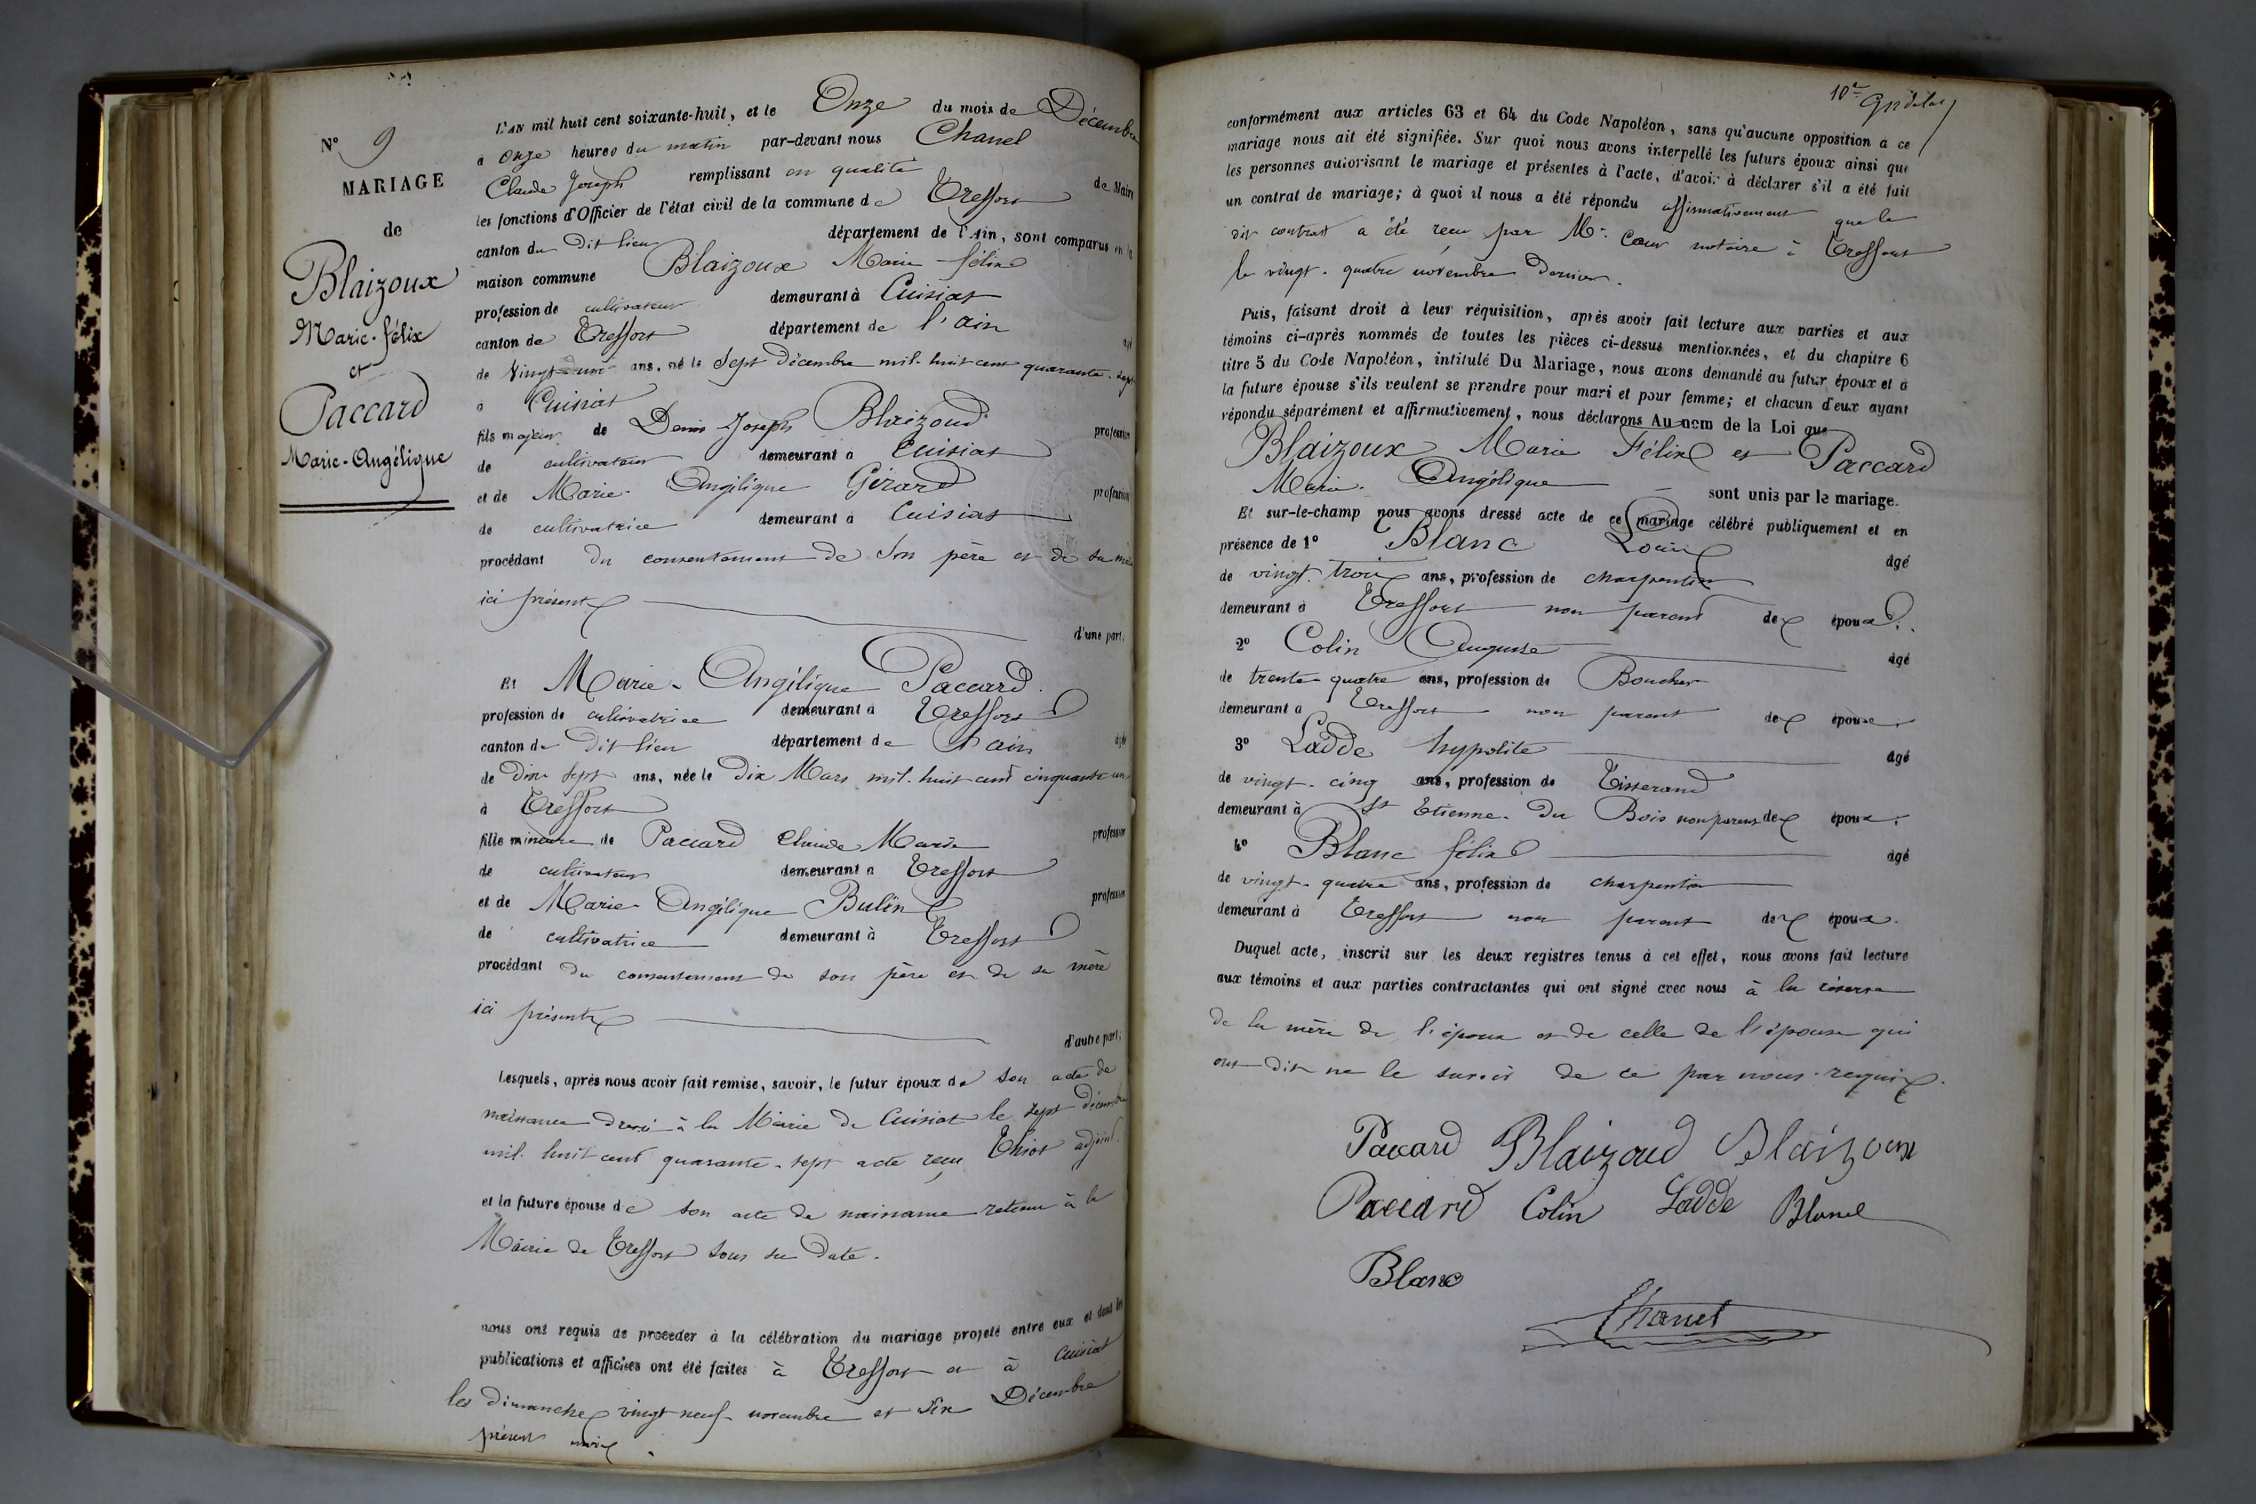 N° 9
MARIAGE
de
Blaizoux
Marie-félix
et
Paccard
Marie-Angélique
L'AN mil huit cent soixante-huit, et le Onze du mois de Décembre
à onze heures du matin par-devant nous Chanel
Claude Joseph remplissant en qualité de Maire
les fonctions d'Officier de l'état civil de la commune de Treffort
canton du dit lieu département de l'Ain, sont comparus en la
maison commune Blaizoux Marie félix
profession de cultivateur demeurant à Cuisiat
canton de Treffort département de l'ain agé
de vingt-un ans, né le Sept décembre mil-huit cent quarante-sept
à Cuisiat
fils majeur de Denis Joseph Blaizoud profession
de cultivateur demeurant à Cuisiat
et de Marie-Angélique Gérard profession
de cultivatrice demeurant à Cuisiat
procédant du consentement de son père et de sa mère
ici présents
d'une part,
Et Marie-Angélique Paccard.
profession de cultivatrice demeurant à Treffort
canton du dit lieu département de l'ain agée
de dix-sept ans, née le dix Mars mil-huit cent cinquante-un
à Treffort
fille mineure de Paccard Claude Marie profession
de cultivateur demeurant à Treffort
et de Marie-Angélique Bulin profession
de cultivatrice demeurant à Treffort
procédant du consentement de son père et de sa mère
ici présents
d'autre part;
Lesquels, après nous avoir fait remise, savoir, le futur époux de son acte de
naissance dressé à la Mairie de Cuisiat le sept décembre
mil-huit cent quarante-sept acte reçu Thiot adjoint.
et la future épouse de son acte de naissance retenu à la
Mairie de Treffort sous sa date.
nous ont requis de procéder à la célébration du mariage projeté entre eux et dont les
publications et affiches ont été faites à Treffort et à Cuisiat
les dimanches vingt neuf novembre et six Décembre
présent mois.
10e
conformément aux articles 63 et 64 du Code Napoléon, sans qu'aucune opposition à ce
mariage nous ait été signifiée. Sur quoi nous avons interpellé les futurs époux ainsi que
les personnes autorisant le mariage et présentes à l'acte, d'avoir à déclarer s'il a été fait
un contrat de mariage; à quoi il nous a été répondu affirmativement que le
dit contrat a été reçu par Me. Cœur notaire à Treffort
le vingt-quatre novembre dernier.
Puis, faisant droit à leur réquisition, après avoir fait lecture aux parties et aux
témoins ci-après nommés de toutes les pièces ci-dessus mentionnées, et du chapitre 6
titre 5 du Code Napoléon, intitulé Du Mariage, nous avons demandé au futur époux et à
la future épouse s'ils veulent se prendre pour mari et pour femme; et chacun d'eux ayant
répondu séparément et affirmativement, nous déclarons Au nom de la Loi que
Blaizoux Marie Félix et Paccard
Marie-Angélique sont unis par le mariage.
Et sur-le-champ nous avons dressé acte de ce mariage célébré publiquement et en
présence de 1° Blanc Louis âgé
de vingt-trois ans, profession de charpentier
demeurant à Treffort non parent des époux.
2° Colin Auguste âgé
de trente-quatre ans, profession de Boucher
demeurant à Treffort non parent des époux.
3° Ladde hypolite âgé
de vingt-cinq ans, profession de Tisserand
demeurant à St Etienne-du Bois non parent des époux.
4° Blanc félix âgé
de vingt-quatre ans, profession de charpentier
demeurant à Treffort non parent des époux.
Duquel acte, inscrit sur les deux registres tenus à cet effet, nous avons fait lecture
aux témoins et aux parties contractantes qui ont signé avec nous à la réserve
de la mère de l'époux et de celle de l'épouse qui
ont dit ne le savoir de ce par nous requis.
Paccard Blaizoud Blaizoux
Paccard Colin Ladde Blanc
Blanc
Chanel